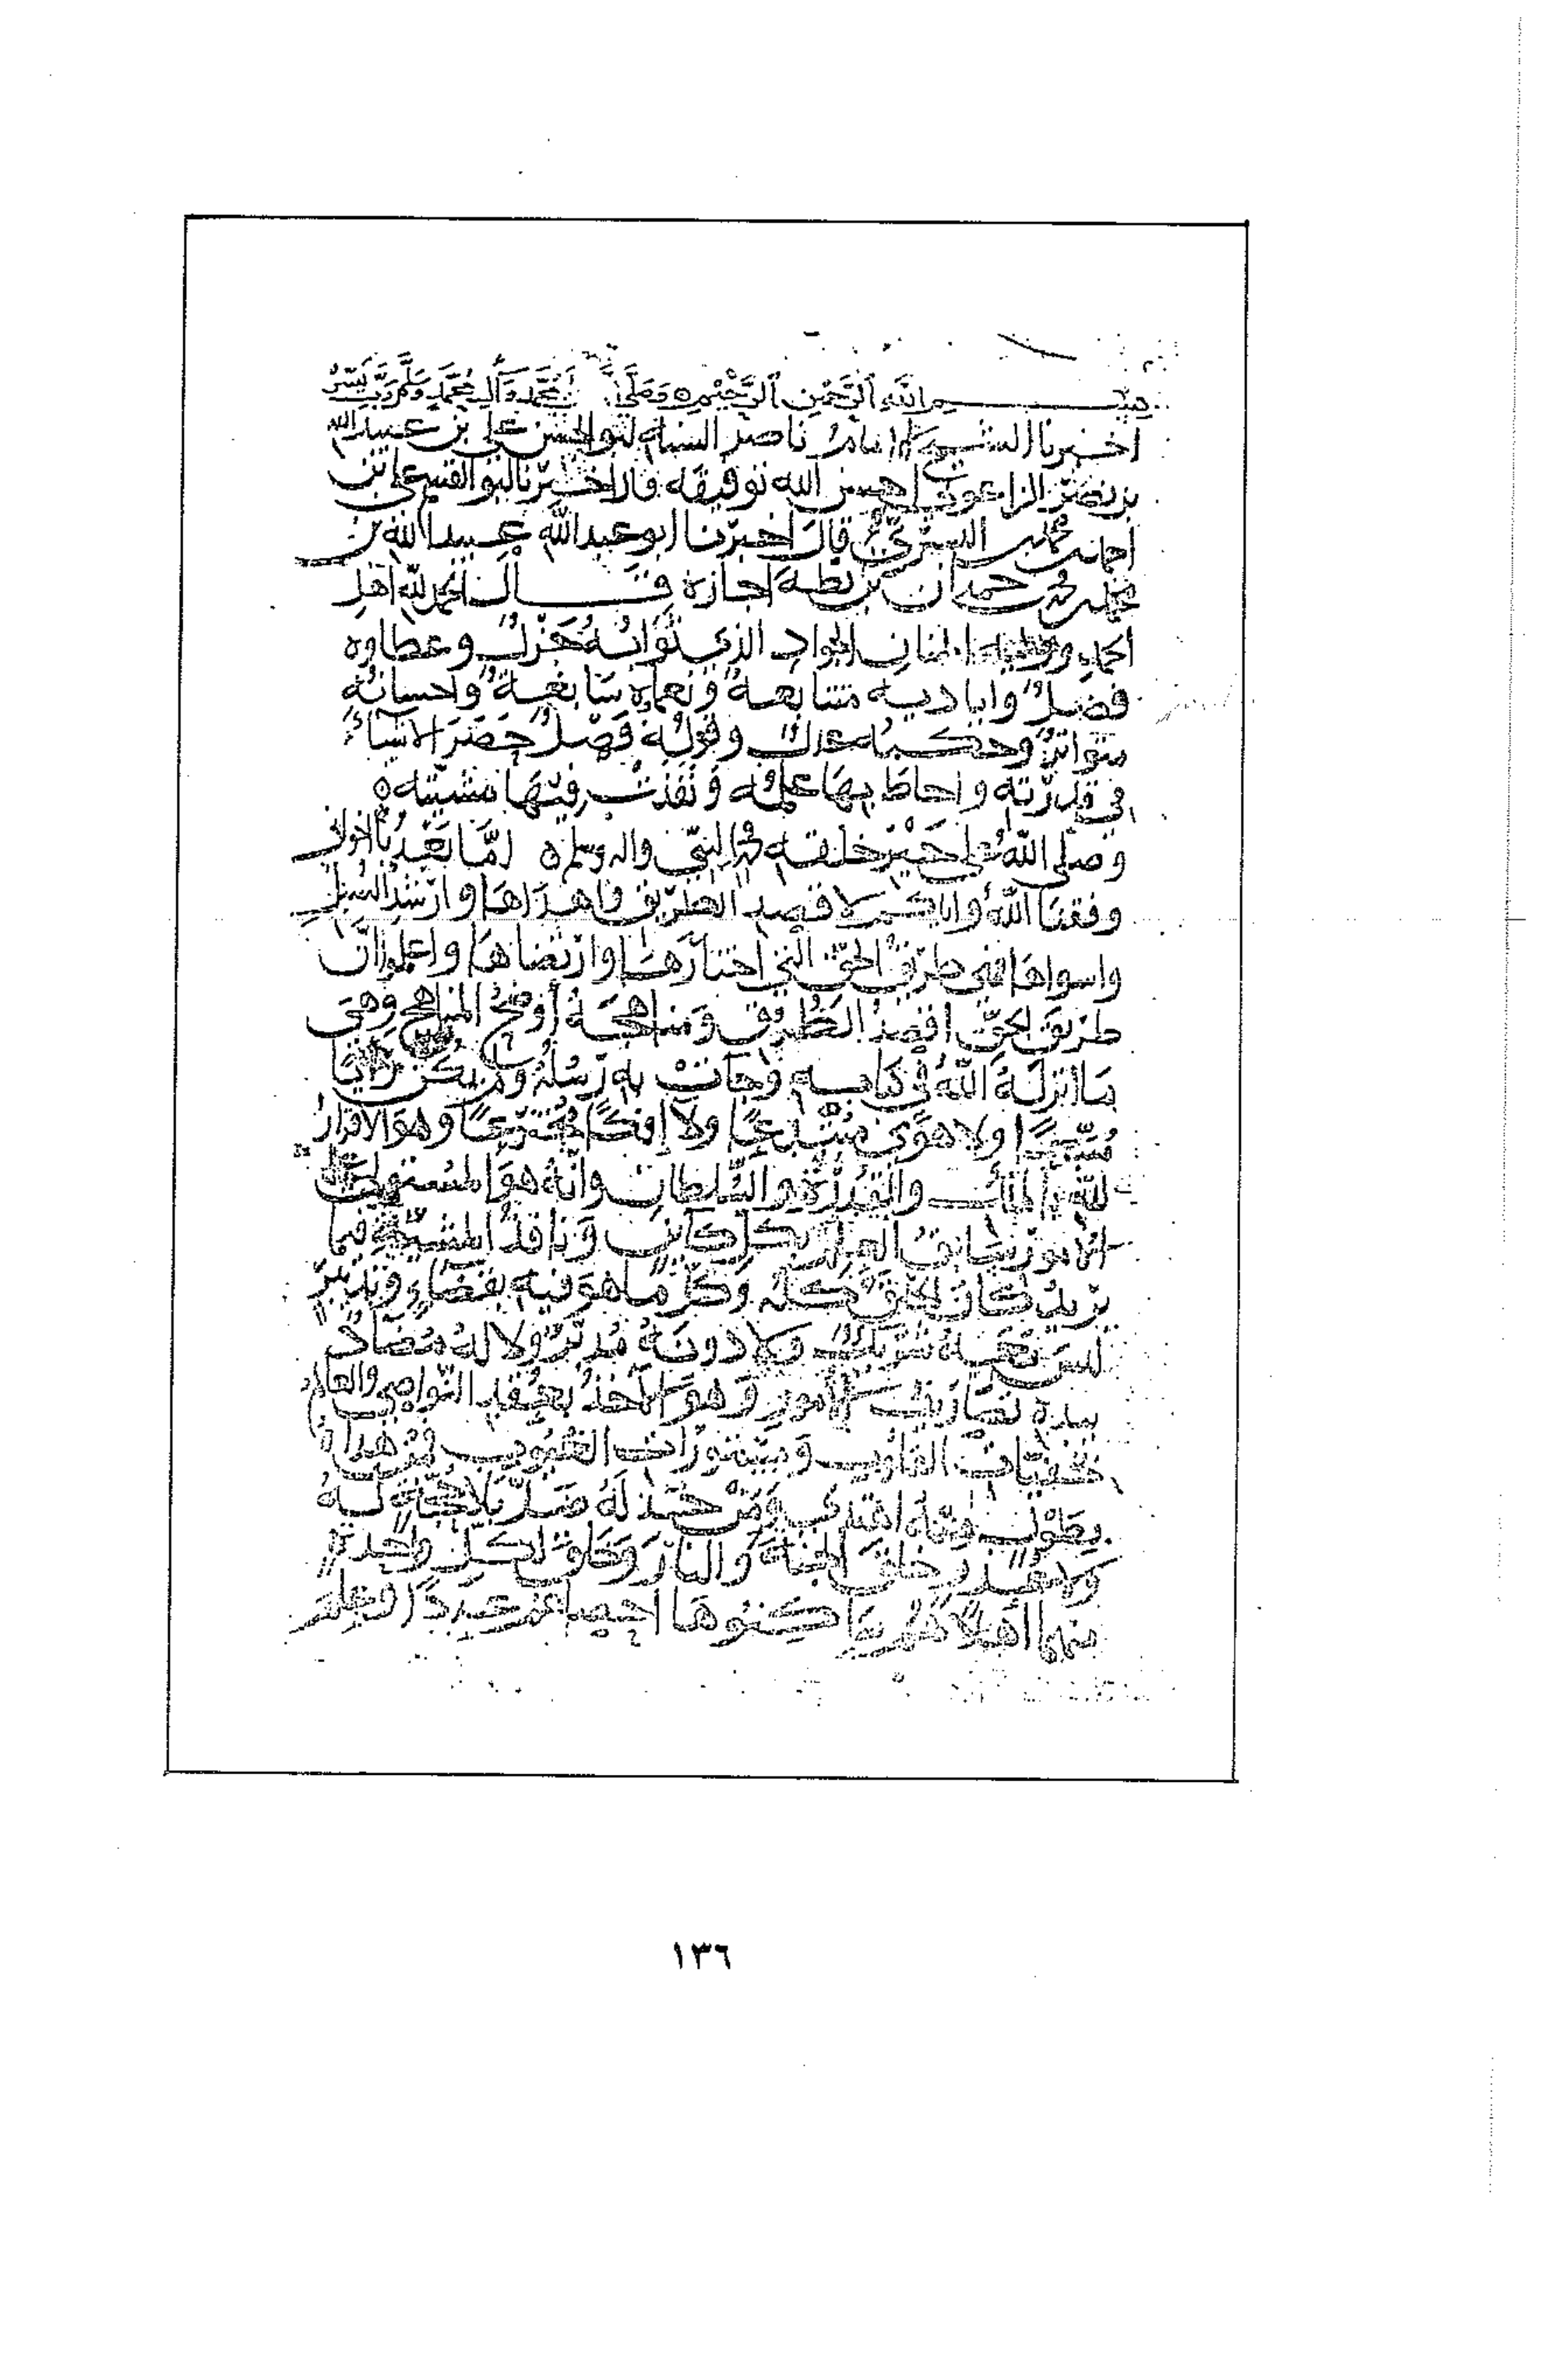 بسم الله الرحمن الرحيم وصلى الله محمد وآل محمد وسلم رب يسر
اخبرنا الشيخ الامام ناصر السنه ابو الحسن علي بن عبيد الله
بن نصر الزاغوني احسن الله توفيقه قال اخبرنا ابو القسم علي بن
احمد بن محمد بن البسري قال اخبرنا ابو عبد الله عبيد الله بن
محمد بن محمد بن حمدان بن بطه اجازة قال الحمد لله اهل
الحمد ووليه المنان الجواد الذي ثوابه جزل وعطاوه
فضل واياديه متتابعة ونعماوه سابغة واحسانه
متواتر وحكمه عدل وقوله فصل حصر الاشياء
في قدرته واحاط بها علمه ونفذت فيها مشيته
وصلى الله على خير خلقه محمد النبي واله وسلم اما بعد يا اخواني
وفقنا الله واياكم لاقصد الطريق واهداها وارشد السبل
واسواها فهي طريق الحق التي اختارها وارتضاها واعلموا ان
طريق الحق اقصد الطرق ومناهجه أوضح المناهج وهي
ما انزله الله في كتابه وجات به رسله ولم يكن رأيا
متبعا ولا هوى مبتدعا ولا إفكا مخترعا وهو الاقرار
لله بالملك والقدرة والسلطان وانه هو المستولي على
الأمور سابق العلم بكل كاين ونافذ المشيئة فيما
يريد كان الخلق كله وكل ما هو فيه بقضاء وتدبير
ليس معه شريك ولا دونه مدبر ولا له مضاد
بيده تصاريف الأمور وهو الآخذ بعقد النواصي والعالم
بخفيات القلوب ومستورات الغيوب فمن هداه
بطول منه اهتدى ومن خذله ضل بلا حجة له
ولا عذر خلق الجنة والنار وخلق لكل واحدة
منهما أهلا هم ساكنوها احصاهم عددا وعلم
١٣٦